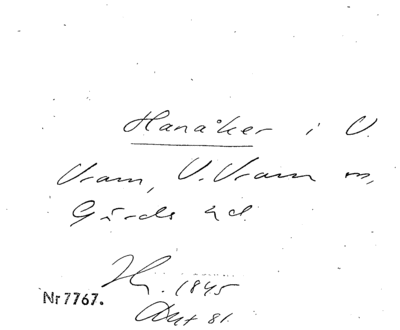 Hanåker i V.
Vram, V. Vram sn,
Gärds hd
1845
Nr 7767.
Akt 81.